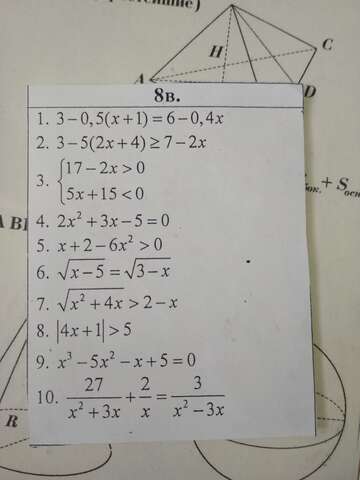 H
C
A
D
8в.
1. 3−0,5(x+1)=6−0,4x
2. 3−5(2x+4)≥7−2x
3. {17−2x>0
5x+15<0
бок. + Sосн
4. 2x²+3x−5=0
5. x+2−6x²>0
6. √(x−5)=√(3−x)
7. √(x²+4x)>2−x
8. |4x+1|>5
9. x³−5x²−x+5=0
10. 27/(x²+3x)+2/x=3/(x²−3x)
R